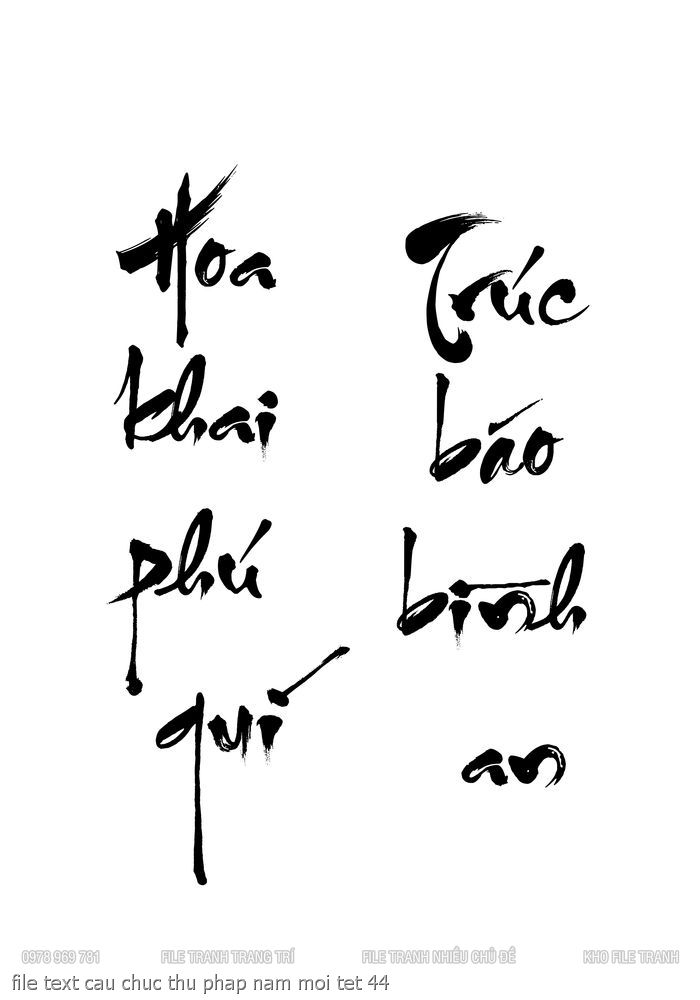 Hoa
khai
phú
quí
Trúc
báo
bình
an
0978 969 781 FILE TRANH TRANG TRÍ FILE TRANH NHIỀU CHỦ ĐỀ KHO FILE TRANH
file text cau chuc thu phap nam moi tet 44